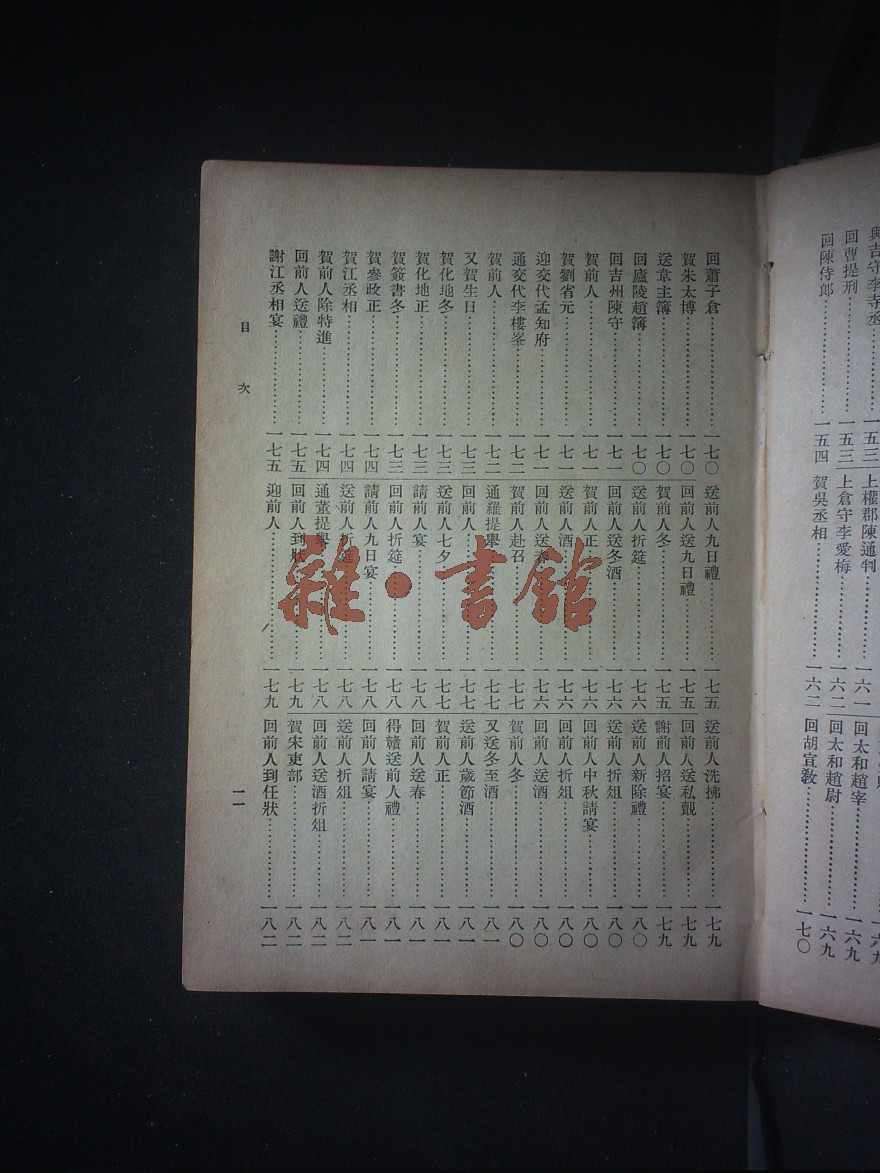 與吉守李寺丞
回曹提刑……一五三
回陳侍郎……一五四
上權郡陳通判……一六一
上倉守李愛梅……一六二
賀吳丞相……一六二
一六九
回太和趙宰……一六九
回太和趙尉……一六九
回胡宣教……一七〇
回蕭子倉……一七〇
賀朱太博……一七〇
送韋主簿……一七〇
回廬陵趙簿……一七〇
回吉州陳守……一七一
賀前人……一七一
賀劉省元……一七一
迎交代孟知府……一七一
通交代李樓峯……一七二
賀前人……一七二
又賀生日……一七三
賀化地冬……一七三
賀化地正……一七三
賀簽書冬……一七三
賀參政正……一七四
賀江丞相……一七四
賀前人除特進……一七四
回前人送禮……一七五
謝江丞相宴……一七五
送前人九日禮……一七五
回前人送九日禮……一七五
賀前人冬……一七五
送前人折筵……一七六
回前人送冬酒……一七六
賀前人正……一七六
送前人酒……一七六
回前人送春……一七六
賀前人赴召……一七七
通羅提舉……一七七
回前人……一七七
送前人七夕……一七七
請前人宴……一七八
回前人折筵……一七八
請前人九日宴……一七八
送前人折筵……一七八
通董提舉……一七八
回前人到狀……一七九
迎前人……一七九
送前人洗拂……一七九
回前人送私覿……一七九
謝前人招宴……一七九
送前人新除禮……一八〇
送前人折俎……一八〇
回前人中秋請宴……一八〇
回前人折俎……一八〇
回前人送酒……一八〇
賀前人冬……一八〇
又送冬至酒……一八一
送前人歲節酒……一八一
賀前人正……一八一
回前人送春……一八一
得贛送前人禮……一八一
回前人請宴……一八一
送前人折俎……一八二
回前人送酒折俎……一八二
賀宋吏部……一八二
回前人到任狀……一八二
目次
一一
雜·書館